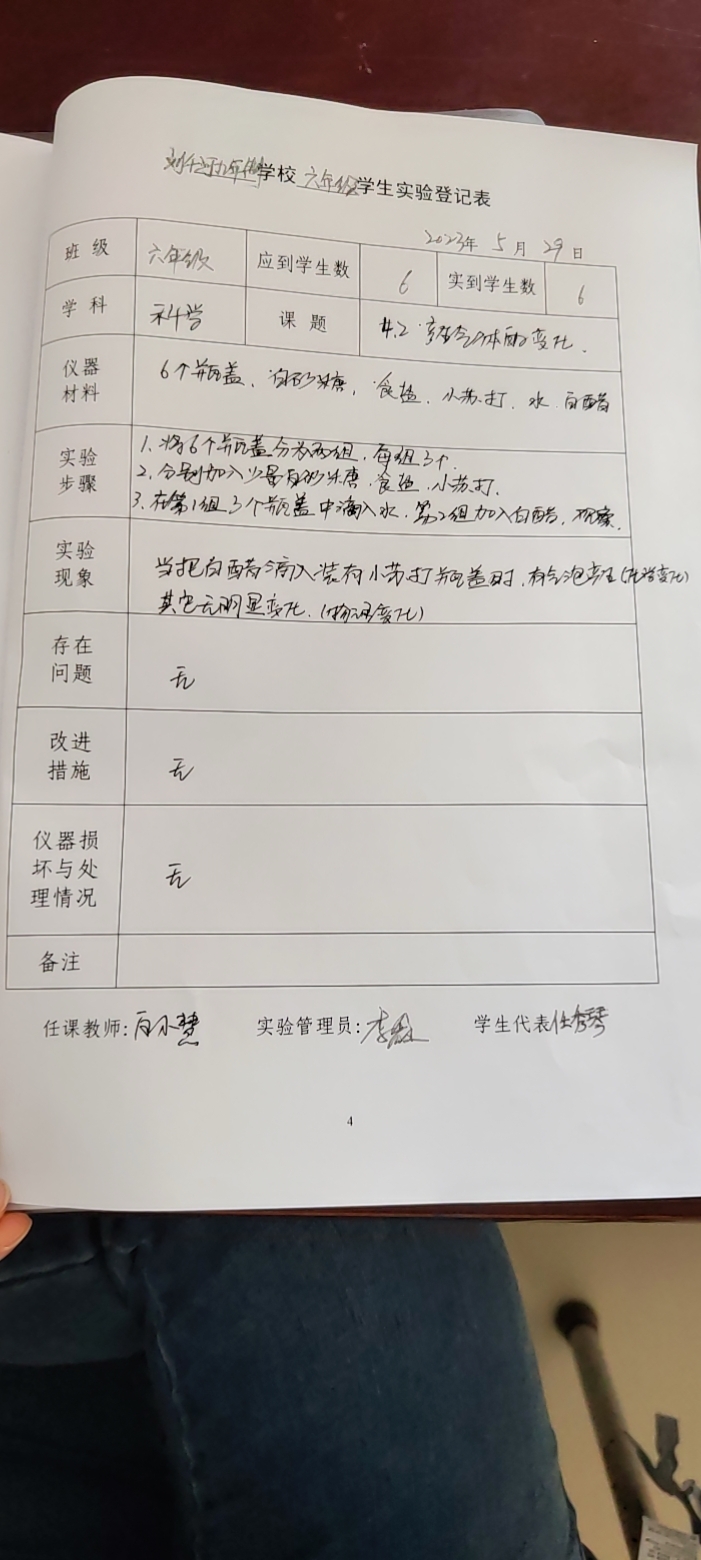 学校 六年级学生实验登记表
2023年 5月 29日
班级 六年级 应到学生数 6 实到学生数 6
学科 科学 课题 4.2 产生气体的变化.
仪器材料 6个瓶盖、白砂糖, 食盐、小苏打、水、白醋
实验步骤 1.将6个瓶盖分为两组,每组3个.
2.分别加入少量白砂糖,食盐,小苏打.
3.在第1组3个瓶盖中滴入水,第2组加入白醋,观察.
实验现象 当把白醋滴入装有小苏打瓶盖时,有气泡产生(化学变化)
其它无明显变化.(物理变化)
存在问题 无
改进措施 无
仪器损坏与处理情况 无
备注
任课教师:白小慧 实验管理员:李 学生代表任秀琴
4